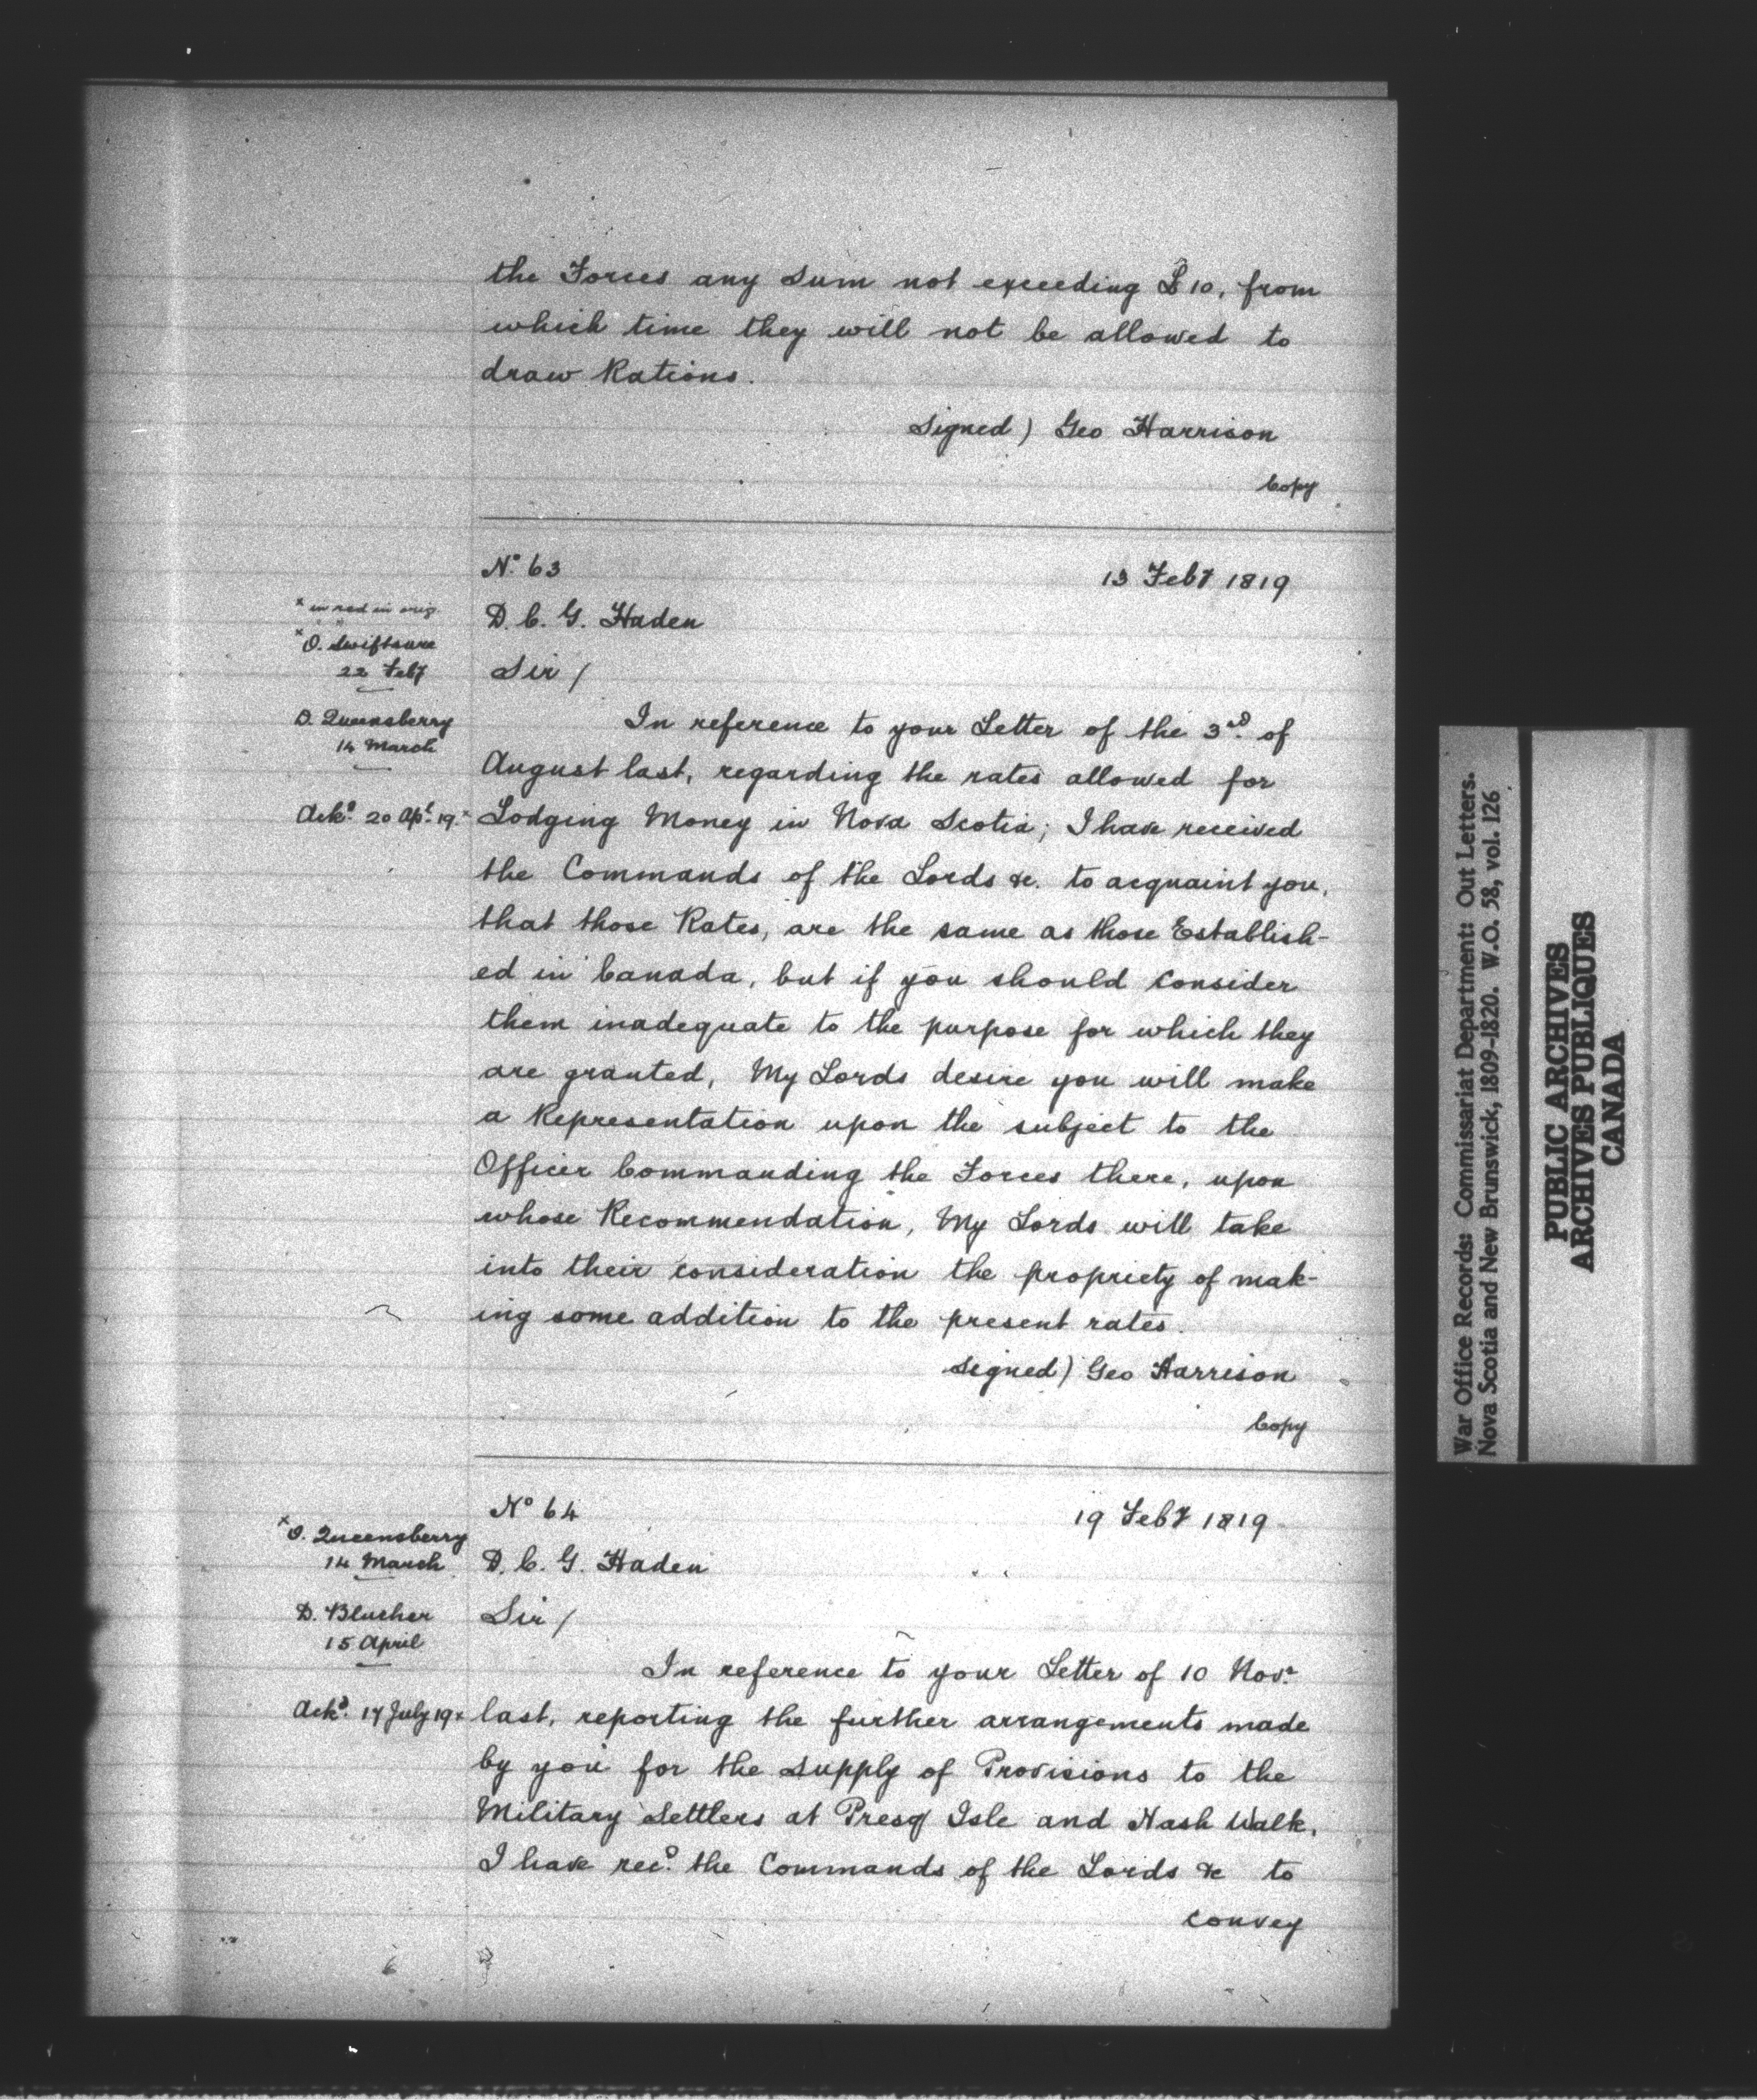 the Forces any Sum not exceeding £10, from
which time they will not be allowed to
draw Rations.
Signed) Geo Harrison
Copy
No. 63
13 Feby 1819
x in red in orig.
D. C. G. Haden
x O. Swiftsure
22 Feby
Sir /
D. Queensberry
14 March
In reference to your Letter of the 3rd. of
August last, regarding the rates allowed for
Ackd. 20 Apl. 19.x
Lodging Money in Nova Scotia; I have received
the Commands of the Lords &c. to acquaint you,
that those Rates, are the same as those Establish-
ed in Canada, but if you should consider
them inadequate to the purpose for which they
are granted, My Lords desire you will make
a Representation upon the subject to the
Officer Commanding the Forces there, upon
whose Recommendation, My Lords will take
into their consideration the propriety of mak-
ing some addition to the present rates.
Signed) Geo Harrison
Copy
No 64
19 Feby 1819
x O. Queensberry
14 March
D. C. G. Haden
D. Blucher
15 April
Sir /
In reference to your Letter of 10 Novr.
Ackd. 17 July 19 x
last, reporting the further arrangements made
by you for the supply of Provisions to the
Military Settlers at Presq Isle and Nash Walk,
I have recd. the Commands of the Lords &c to
convey
War Office Records: Commissariat Department: Out Letters.
Nova Scotia and New Brunswick, 1809-1820. W.O. 58, vol. 126
PUBLIC ARCHIVES
ARCHIVES PUBLIQUES
CANADA